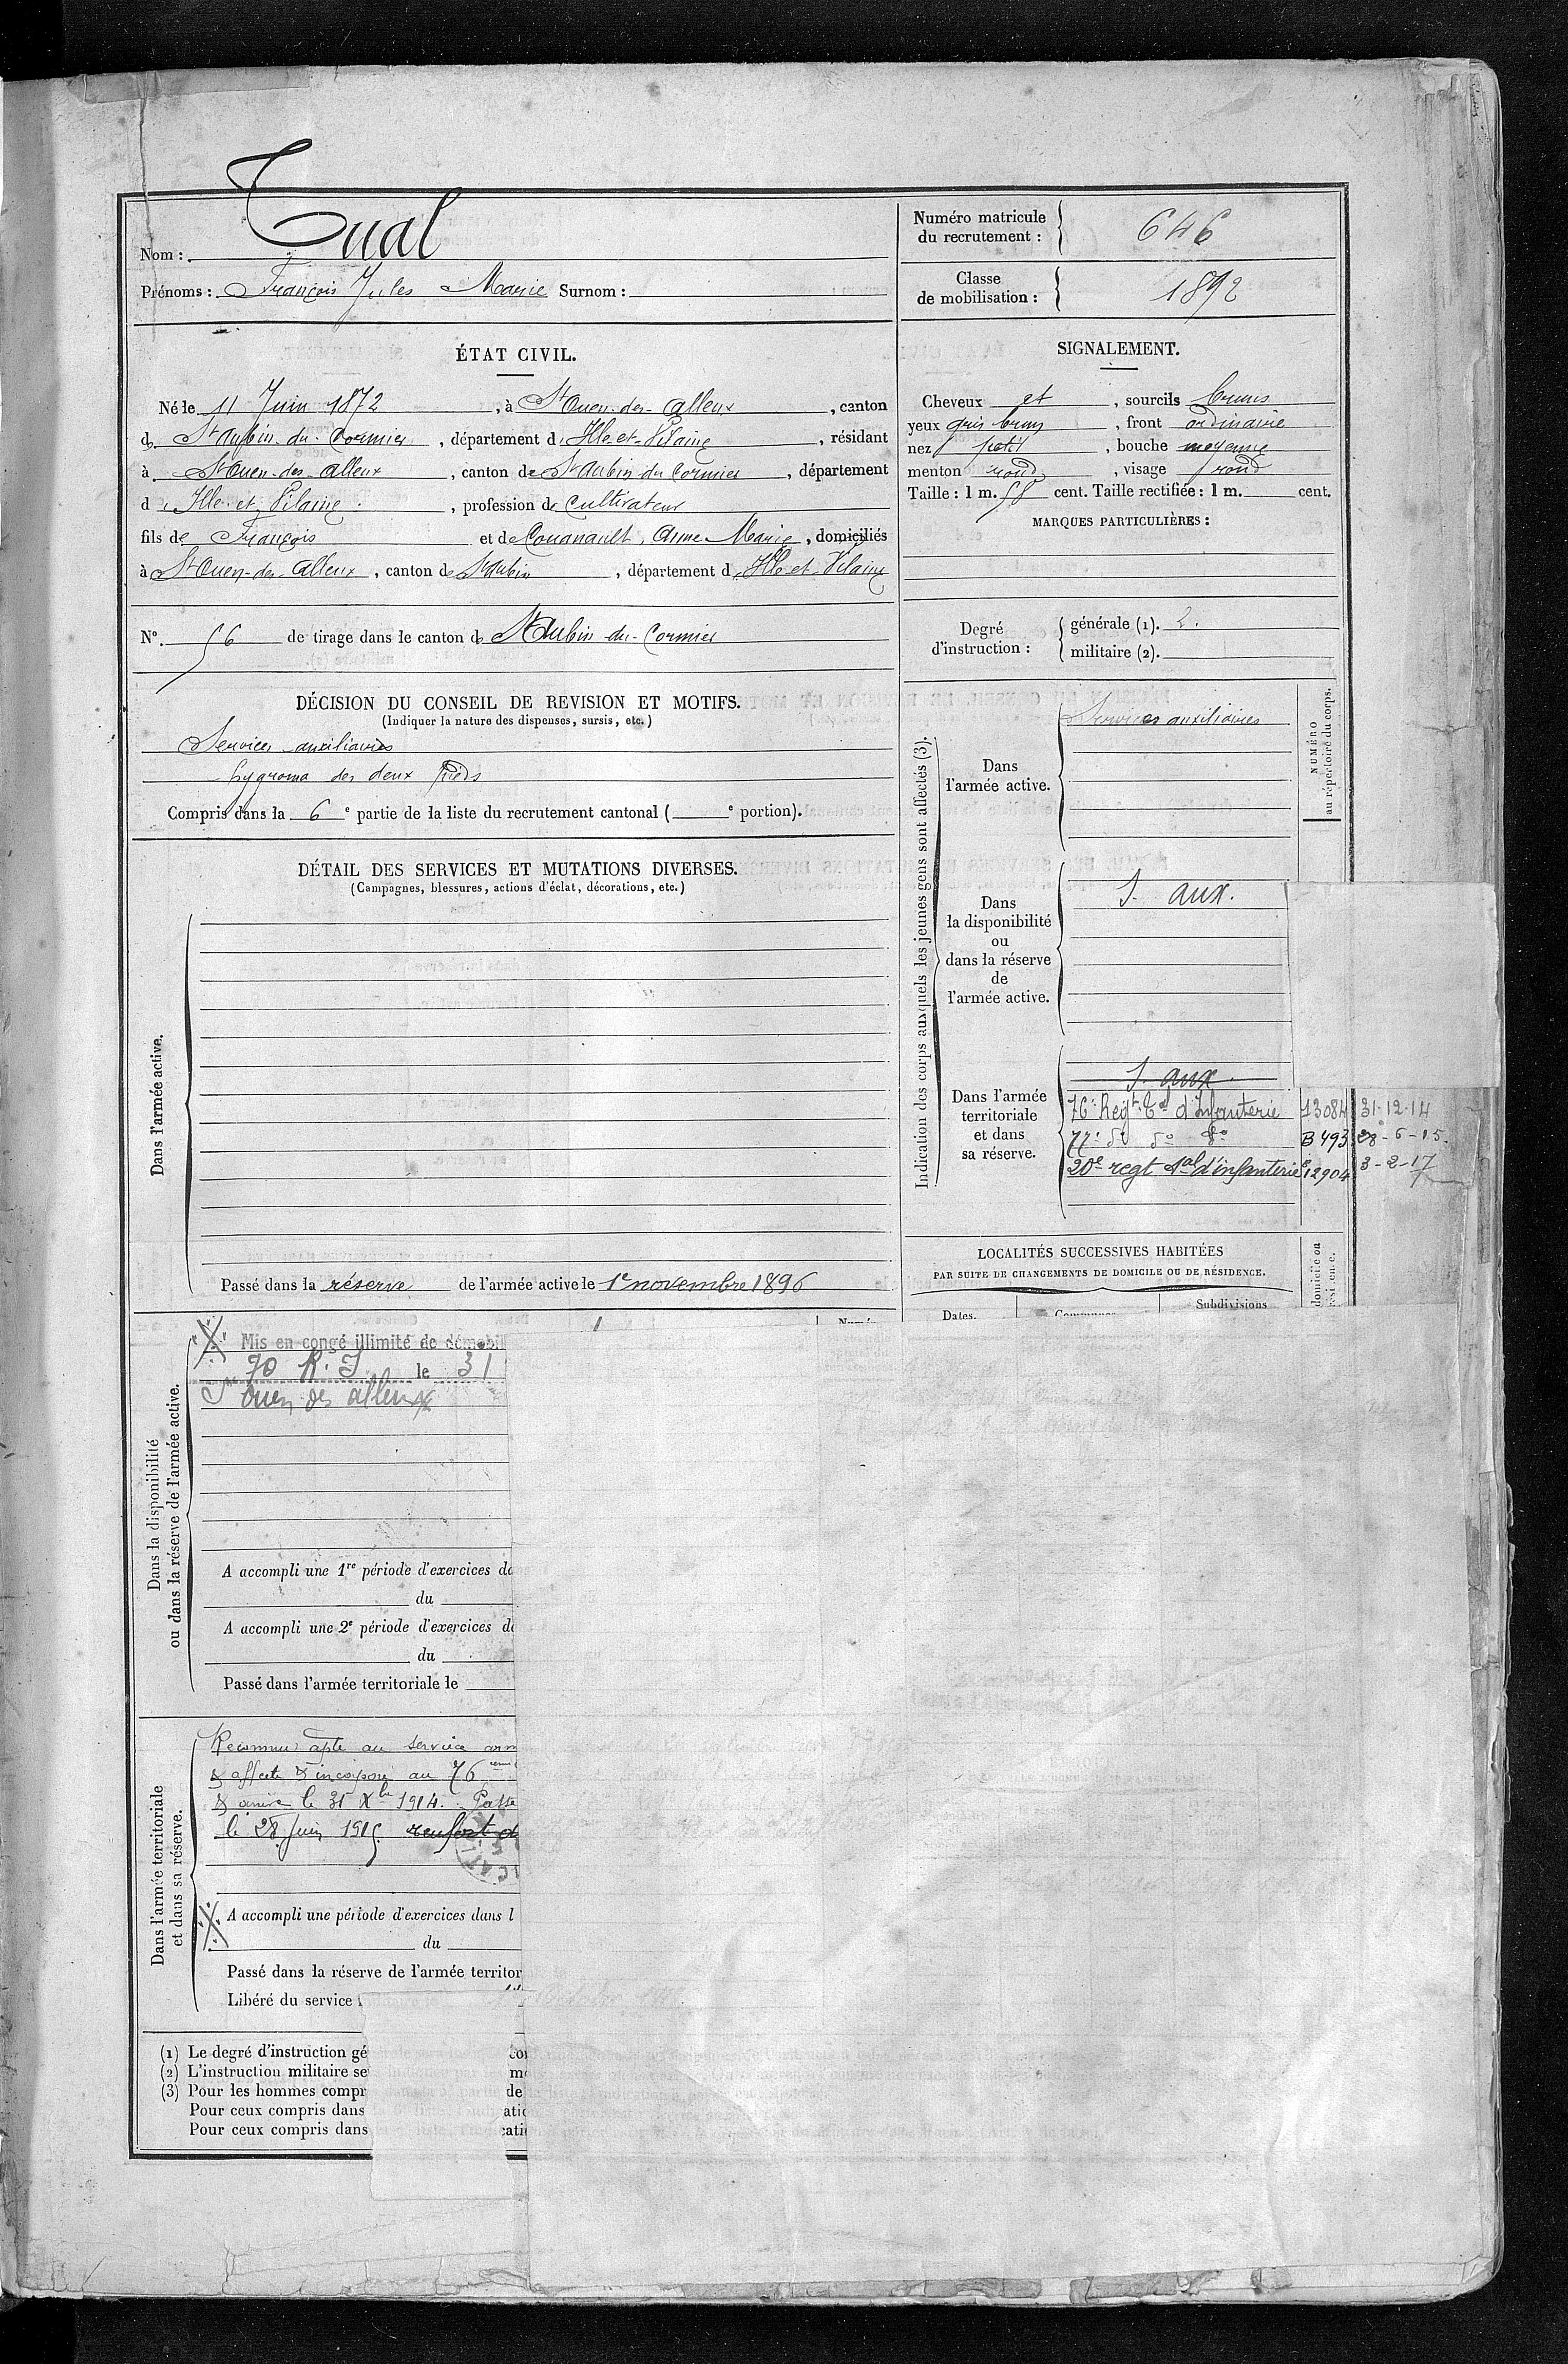 Nom : Tual
Prénoms : François Jules Marie Surnom :
Numéro matricule
du recrutement : 646
Classe
de mobilisation : 1892
ÉTAT CIVIL.
Né le 11 Juin 1872, à St Ouen-des-Alleux, canton
de St Aubin-du-Cormier, département d'Ille-et-Vilaine, résidant
à St Ouen-des-Alleux, canton de St Aubin du Cormier, département
d'Ille-et-Vilaine, profession de Cultivateur
fils de François et de Couanault, Anne Marie, domiciliés
à St Ouen-des-Alleux, canton de St Aubin, département d'Ille-et-Vilaine
N° 56 de tirage dans le canton de St Aubin-du-Cormier
SIGNALEMENT.
Cheveux et, sourcils bruns
yeux gris brun, front ordinaire
nez petit, bouche moyenne
menton rond, visage rond
Taille : 1 m. 58 cent. Taille rectifiée : 1 m. cent.
MARQUES PARTICULIÈRES :
Degré
d'instruction :
générale (1). 2.
militaire (2).
DÉCISION DU CONSEIL DE REVISION ET MOTIFS.
(Indiquer la nature des dispenses, sursis, etc.)
Services auxiliaires
hygroma des deux pieds
Compris dans la 6e partie de la liste du recrutement cantonal ( e portion).
DÉTAIL DES SERVICES ET MUTATIONS DIVERSES.
(Campagnes, blessures, actions d'éclat, décorations, etc.)
Dans l'armée active.
Passé dans la réserve de l'armée active le 1er novembre 1896
Indication des corps auxquels les jeunes gens sont affectés (3).
NUMÉRO
au répertoire du corps.
Dans
l'armée active.
Services auxiliaires
Dans
la disponibilité
ou
dans la réserve
de
l'armée active.
S. aux.
Dans l'armée
territoriale
et dans
sa réserve.
S. aux.
76e Regt Tal d'Infanterie 13084 31-12-14
77e do do do B 493 28-6-15.
20e regt tal d'infanterie 12904 3-2-17
LOCALITÉS SUCCESSIVES HABITÉES
PAR SUITE DE CHANGEMENTS DE DOMICILE OU DE RÉSIDENCE.
Dates.
Subdivisions
Dans la disponibilité
ou dans la réserve de l'armée active.
Mis en congé illimité de démobil
70 R.I. le 31
St Ouen des alleux
A accompli une 1re période d'exercices da
du
A accompli une 2e période d'exercices da
du
Passé dans l'armée territoriale le
Dans l'armée territoriale
et dans sa réserve.
Reconnu apte au service arm
& affecté & incorporé au 76ème
& arrivé le 31 Xbre 1914. Passé
le 28 Juin 1915 renfort d
A accompli une période d'exercices dans l
du
Passé dans la réserve de l'armée territor
Libéré du service
(1) Le degré d'instruction gé
(2) L'instruction militaire se
(3) Pour les hommes compr
Pour ceux compris dans
Pour ceux compris dans